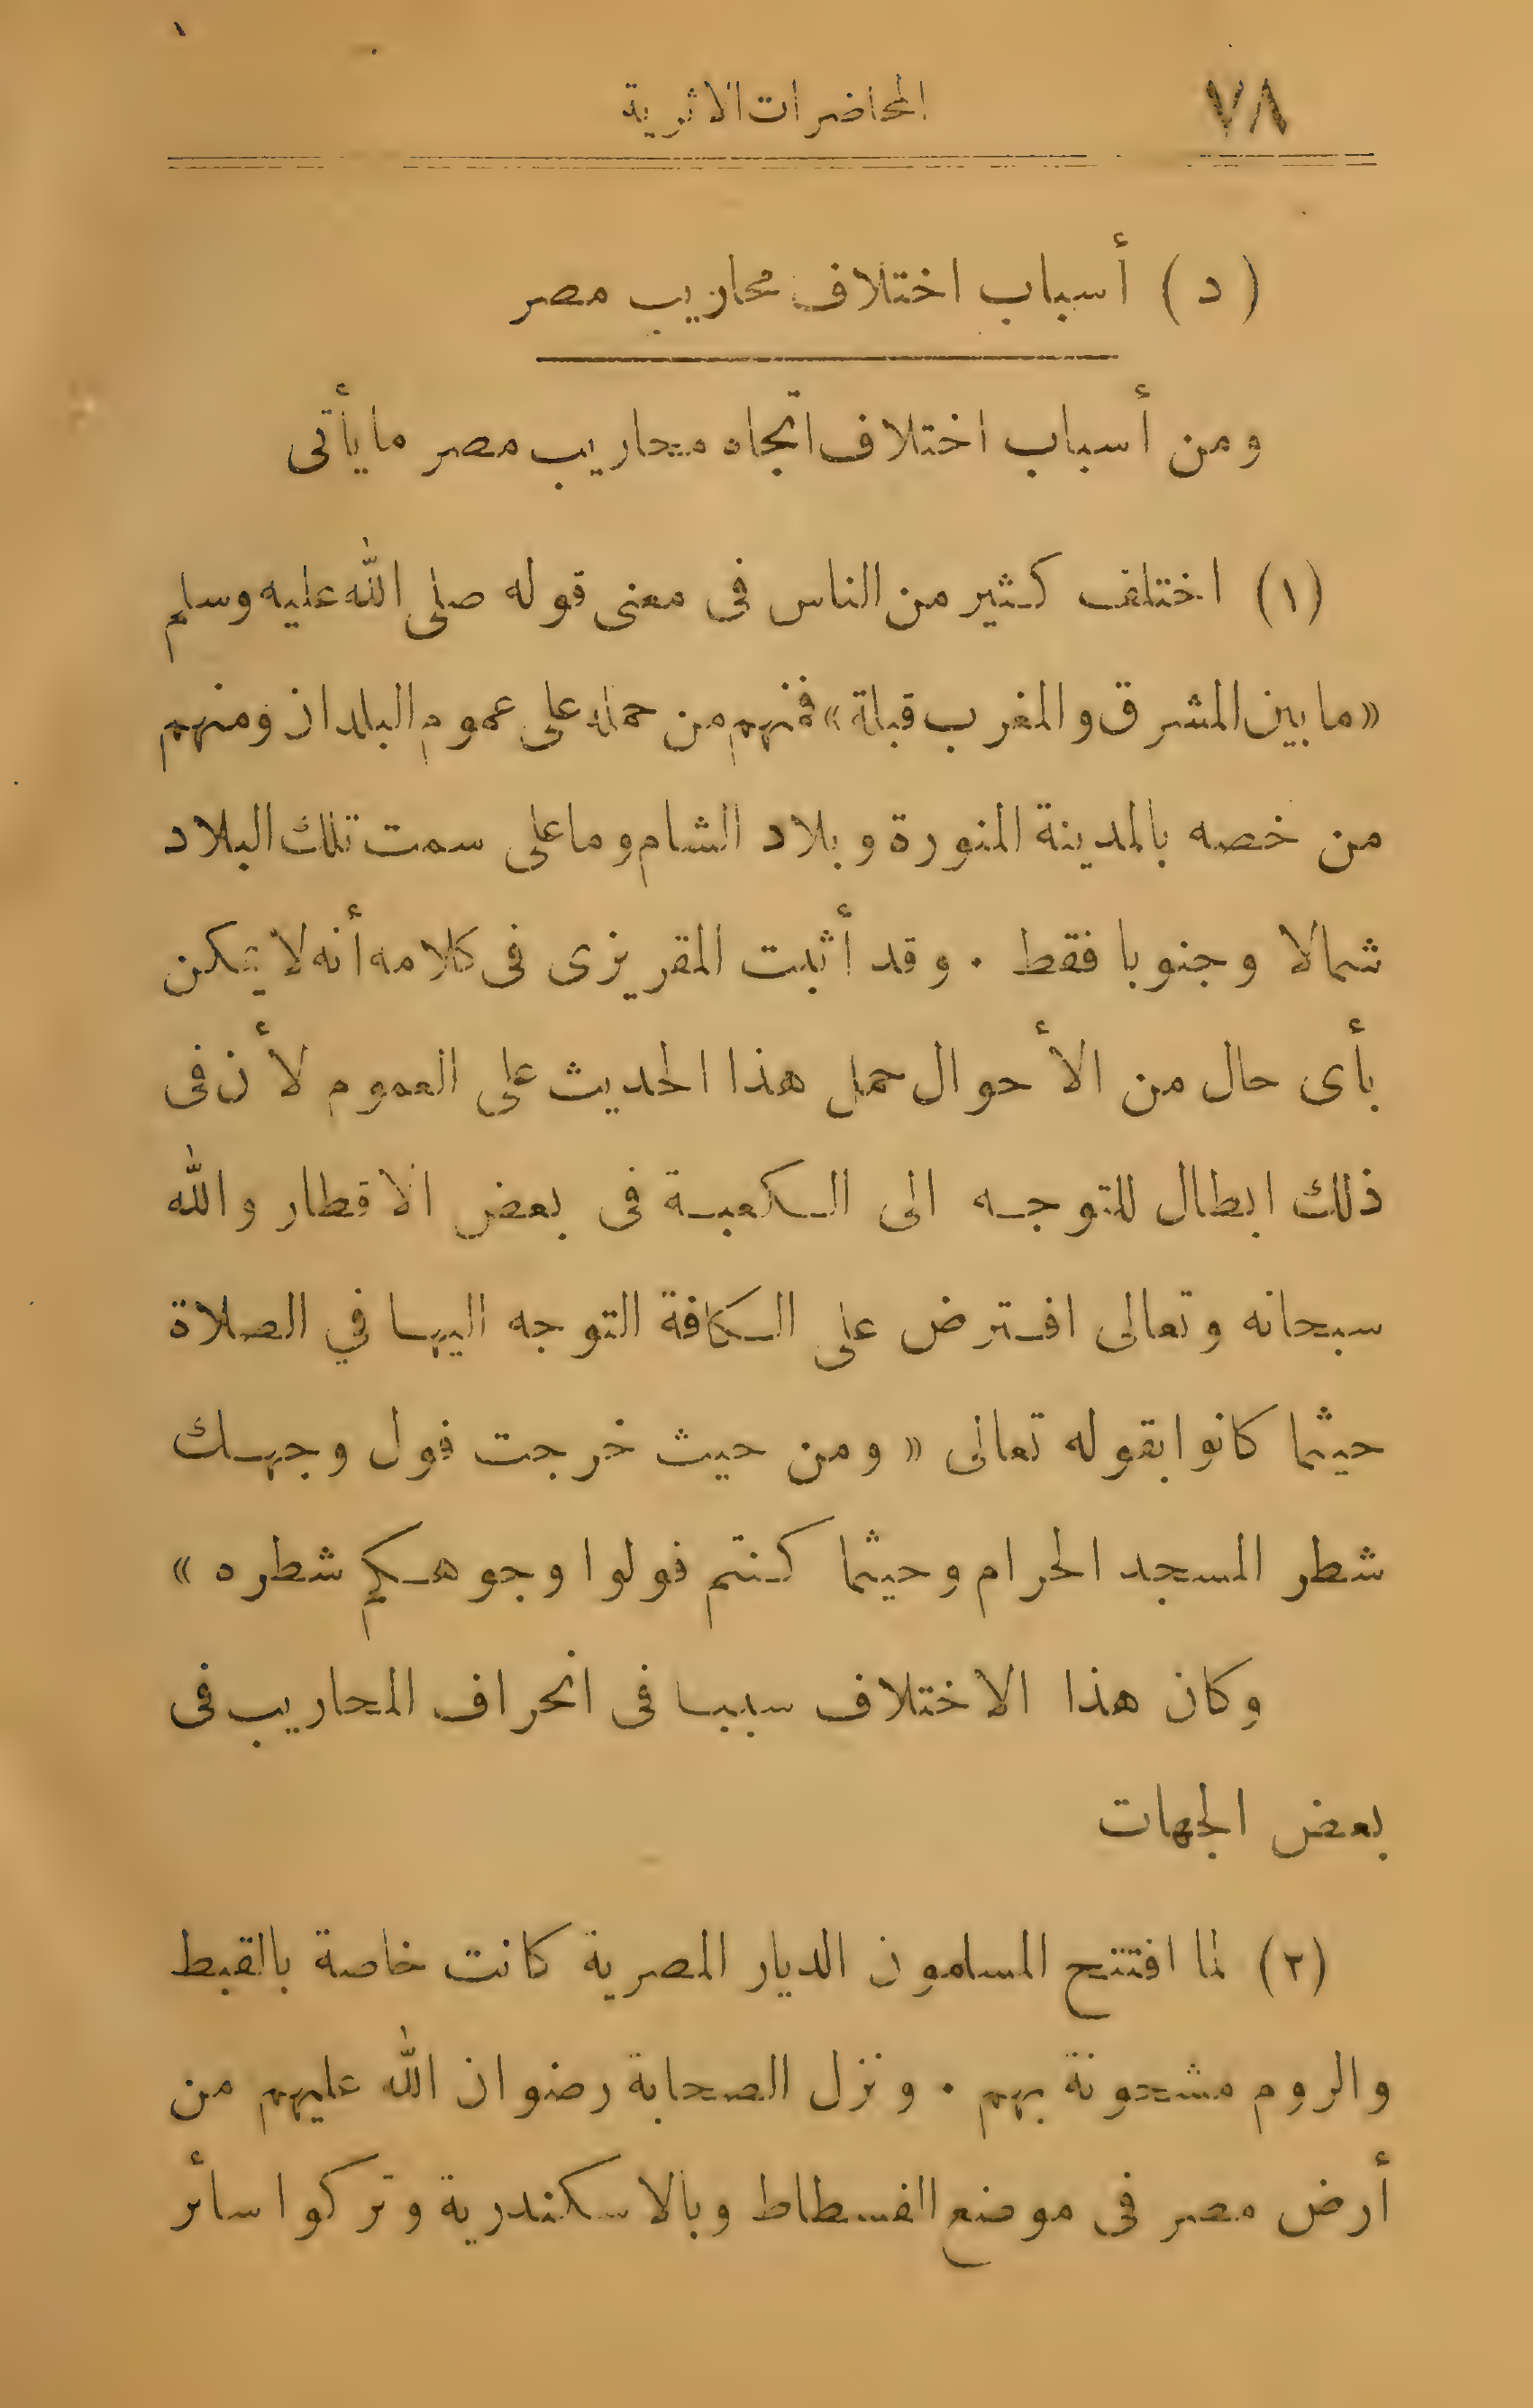 ٧٨
المحاضرات الاثرية
(د) أسباب اختلاف محاريب مصر
ومن أسباب اختلاف اتجاه محاريب مصر ما يأتى
(١) اختلف كثير من الناس فى معنى قوله صلى الله عليه وسلم
«ما بين المشرق والمغرب قبلة» فمنهم من حمله على عموم البلدان ومنهم
من خصه بالمدينة المنورة وبلاد الشام وما على سمت تلك البلاد
شمالا وجنوبا فقط . وقد أثبت المقريزى فى كلامه أنه لا يمكن
بأى حال من الأحوال حمل هذا الحديث على العموم لأن فى
ذلك ابطال للتوجه الى الكعبة فى بعض الاقطار والله
سبحانه وتعالى افترض على الكافة التوجه اليها في الصلاة
حيثما كانوا بقوله تعالى « ومن حيث خرجت فول وجهك
شطر المسجد الحرام وحيثما كنتم فولوا وجوهكم شطره »
وكان هذا الاختلاف سببا فى انحراف المحاريب فى
بعض الجهات
(٢) لما افتتح المسلمون الديار المصرية كانت خاصة بالقبط
والروم مشحونة بهم . ونزل الصحابة رضوان الله عليهم من
أرض مصر فى موضع الفسطاط وبالاسكندرية وتركوا سائر